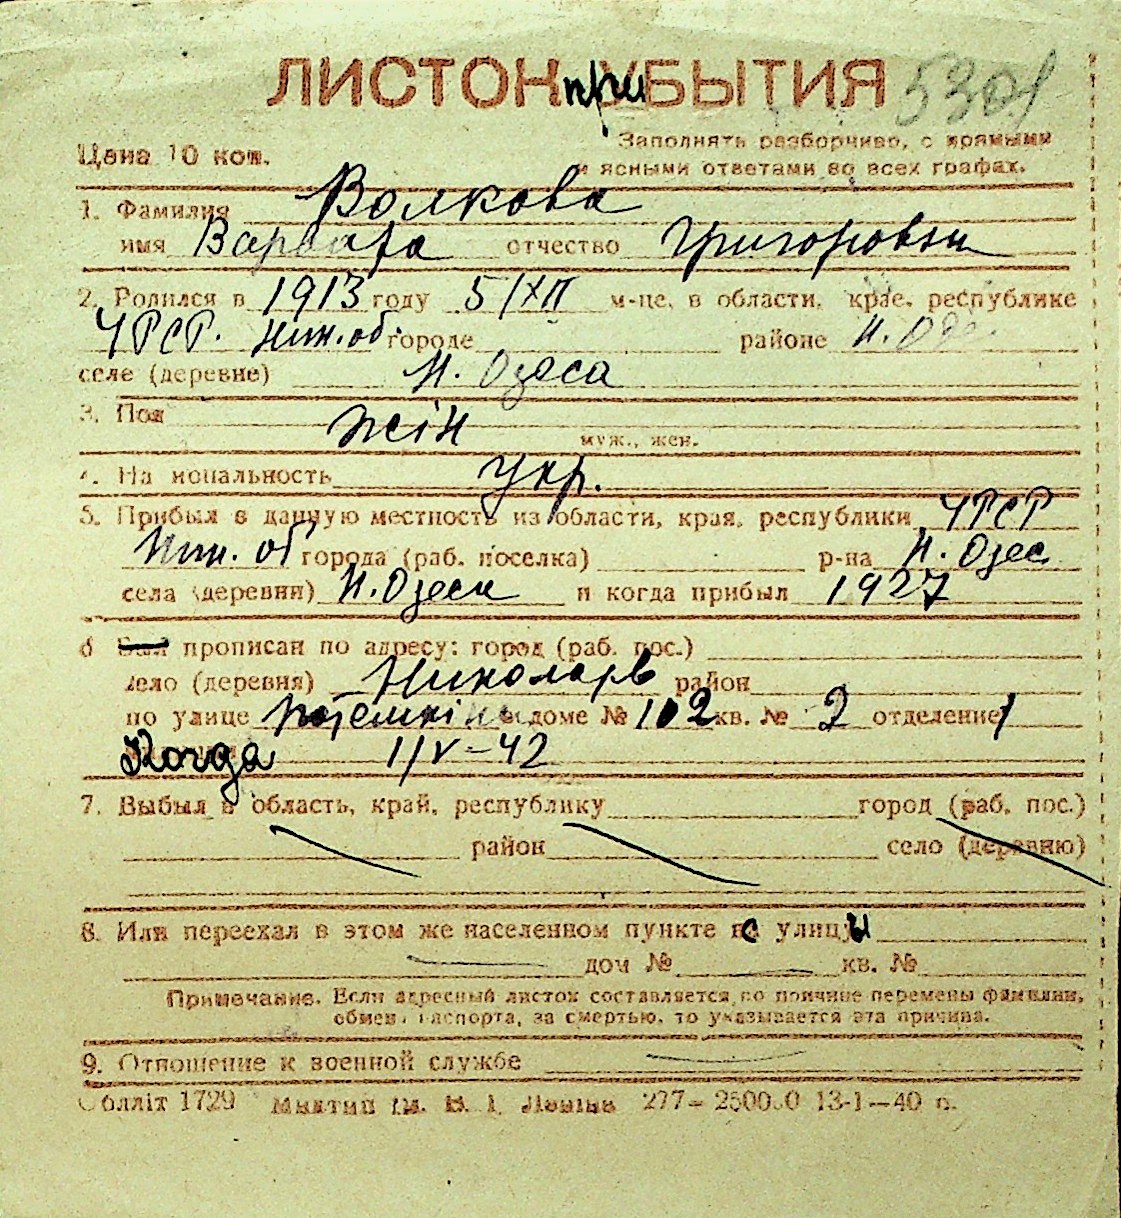 ЛИСТОК при УБЫТИЯ 5301
Цена 10 коп.
Заполнять разборчиво, с прямыми
и ясными ответами во всех графах.
1. Фамилия Волкова
имя Варвара отчество Григоровна
2. Родился в 1913 году 5/XII м-це, в области, крае, республике
УРСР. Ник. об. городе районе Н. Оде.
селе (деревне) Н. Одеса
3. Пол жін
муж., жен.
4. Национальность Укр.
5. Прибыл в данную местность из области, края, республики УРСР
Ник. об города (раб. поселка) р-на Н. Одес
села (деревни) Н. Одеси и когда прибыл 1927
6 Был прописан по адресу: город (раб. пос.)
село (деревня) Николаев район
по улице Потемкінск в доме № 102 кв. № 2 отделение 1
Когда 1/V-42
7. Выбыл в область, край, республику город (раб. пос.)
район село (деревню)
8. Или переехал в этом же населенном пункте с улицы
дом № кв. №
Примечание. Если адресный листок составляется по причине перемены фамилии,
обмена паспорта, за смертью, то указывается эта причина.
9. Отношение к военной службе
Облліт 1729 Миктип ім. В. І. Леніна 277— 13-1—40 р.